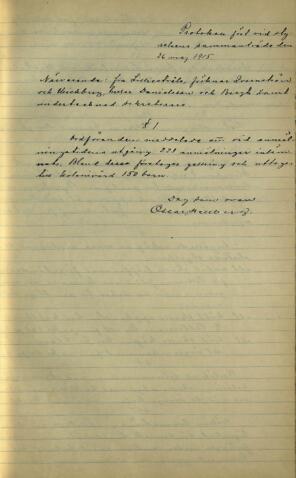 Protokoll fört vid sty-
relsens sammanträde den
26 maj 1915
Närvarande: fru Liljestråle, fröknar
och Hirchberg, herrar Danielsson och Bergh samt
undertecknad sekreterare.
§ 1
Ordföranden meddelade att vid anmäl-
ningstidens utgång 221 anmälningar inläm-
nats. Bland dessa företages gallring och uttages
till kolonivård 150 barn.
Dag som ovan
Oscar